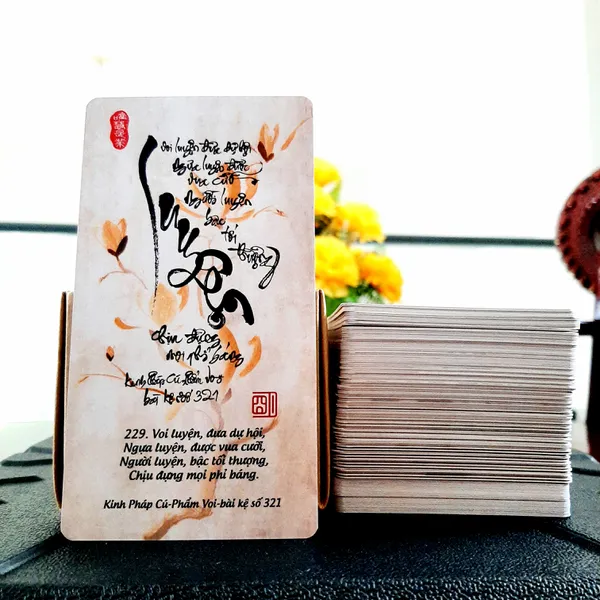 Voi luyện đưa dự hội
Ngựa luyện được
vua cưỡi
Người luyện
bậc
tối
thượng
Chịu đựng
mọi phỉ báng
Kinh Pháp Cú Phẩm Voi
bài kệ số 321
229. Voi luyện, đưa dự hội,
Ngựa luyện, được vua cưỡi,
Người luyện, bậc tối thượng,
Chịu đựng mọi phỉ báng.
Kinh Pháp Cú-Phẩm Voi-bài kệ số 321